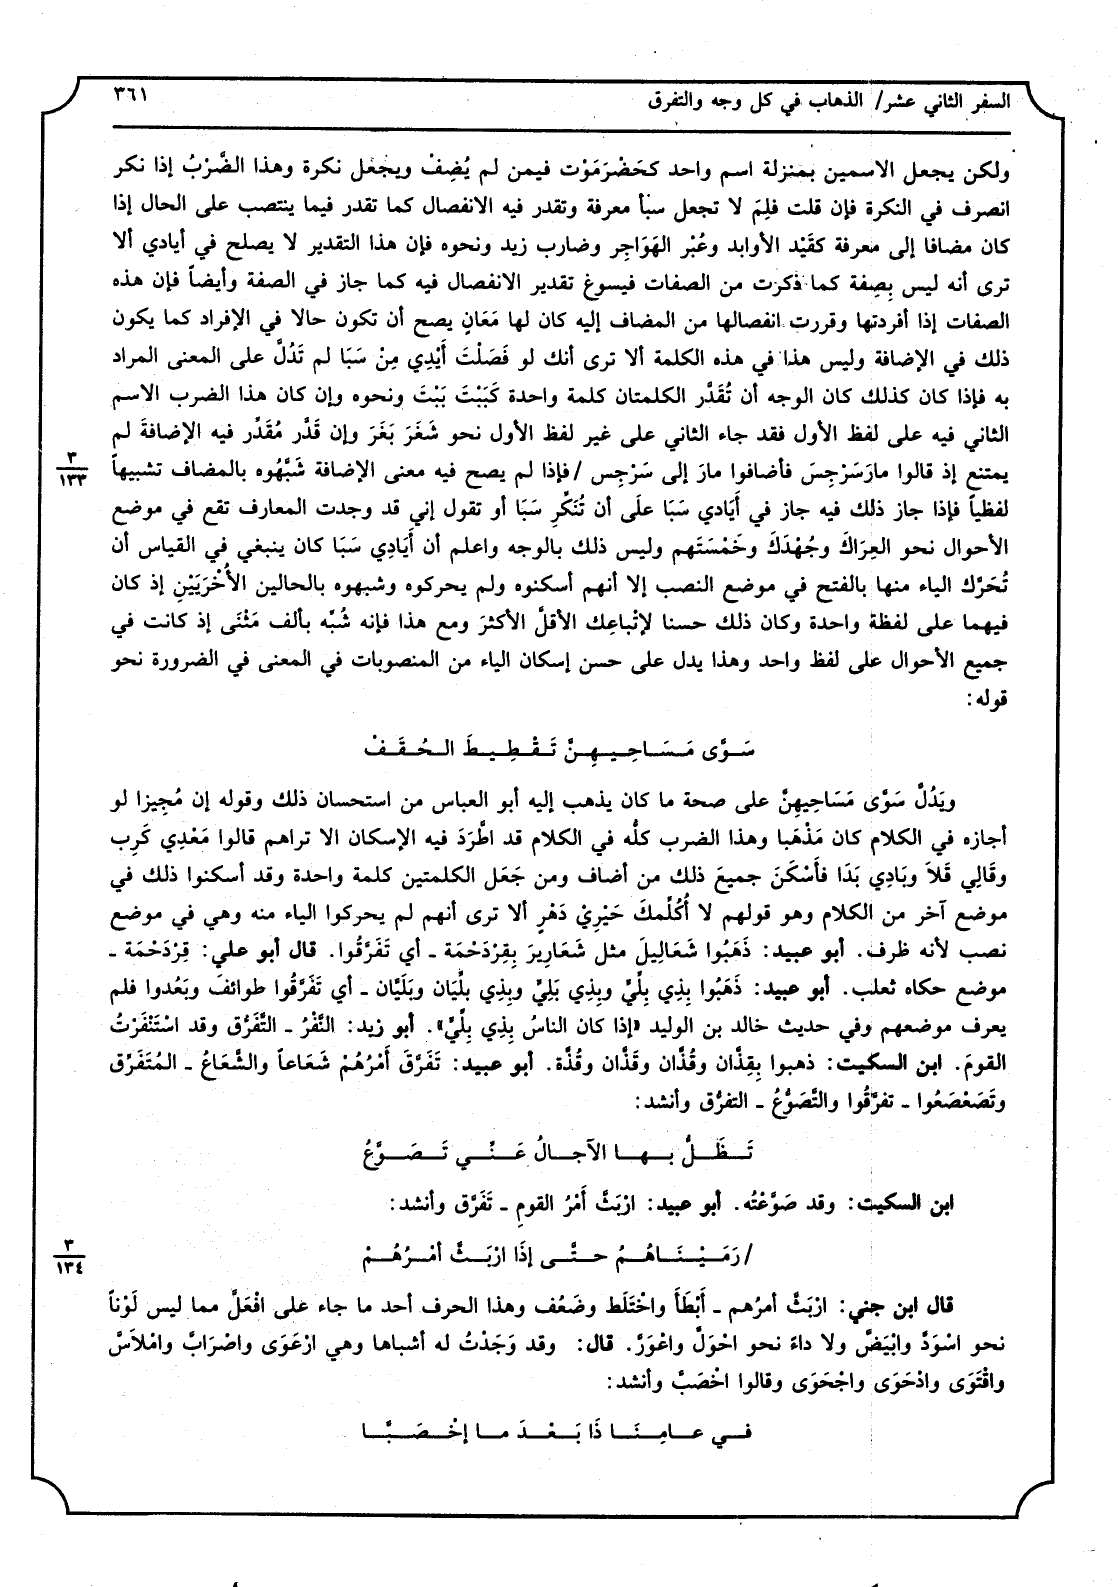 السفر الثاني عشر/ الذهاب في كل وجه والتفرق ٣٦١
ولكن يجعل الاسمين بمنزلة اسم واحد كحَضْرَمَوْت فيمن لم يُضِفْ ويجعل نكرة وهذا الضَّرْبُ إذا نكر
انصرف في النكرة فإن قلت فلِمَ لا تجعل سبأ معرفة وتقدر فيه الانفصال كما تقدر فيما ينتصب على الحال إذا
كان مضافا إلى معرفة كقَيْد الأوابد وعُبْر الهَوَاجِر وضارب زيد ونحوه فإن هذا التقدير لا يصلح في أيادي ألا
ترى أنه ليس بِصِفة كما ذكرت من الصفات فيسوغ تقدير الانفصال فيه كما جاز في الصفة وأيضاً فإن هذه
الصفات إذا أفردتها وقررت انفصالها من المضاف إليه كان لها مَعَانٍ يصح أن تكون حالا في الإفراد كما يكون
ذلك في الإضافة وليس هذا في هذه الكلمة ألا ترى أنك لو فَصَلْتَ أَيْدِي مِنْ سَبَا لم تَدُلَّ على المعنى المراد
به فإذا كان كذلك كان الوجه أن تُقَدَّر الكلمتان كلمة واحدة كَبَيْتَ بَيْتَ ونحوه وإن كان هذا الضرب الاسم
الثاني فيه على لفظ الأول فقد جاء الثاني على غير لفظ الأول نحو شَغَرَ بَغَرَ وإن قَدَّر مُقَدِّر فيه الإضافةَ لم
يمتنع إذ قالوا مارَسَرْجِسَ فأضافوا مارَ إلى سَرْجِس /فإذا لم يصح فيه معنى الإضافة شَبَّهُوه بالمضاف تشبيهاً
٣
١٣٣
لفظياً فإذا جاز ذلك فيه جاز في أَيَادي سَبَا علَى أن تُنَكِّر سَبَا أو تقول إني قد وجدت المعارف تقع في موضع
الأحوال نحو العِرَاكَ وجُهْدَكَ وخَمْسَتَهم وليس ذلك بالوجه واعلم أن أَيَادِي سَبَا كان ينبغي في القياس أن
تُحَرَّك الياء منها بالفتح في موضع النصب إلا أنهم أسكنوه ولم يحركوه وشبهوه بالحالين الأُخْرَيَيْنِ إذ كان
فيهما على لفظة واحدة وكان ذلك حسنا لإتْباعِك الأقلَّ الأكثرَ ومع هذا فإنه شُبِّه بألف مَثْنَى إذ كانت في
جميع الأحوال على لفظ واحد وهذا يدل على حسن إسكان الياء من المنصوبات في المعنى في الضرورة نحو
قوله:
سَوَّى مَسَاحِيهِنَّ تَقْطِيطَ الحُقَفْ
ويَدُلَّ سَوَّى مَسَاحِيهِنَّ على صحة ما كان يذهب إليه أبو العباس من استحسان ذلك وقوله إن مُجِيزا لو
أجازه في الكلام كان مَذْهَبا وهذا الضرب كلُّه في الكلام قد اطَّرَدَ فيه الإسكان الا تراهم قالوا مَعْدِي كَرِب
وقَالِي قَلاَ وبَادِي بَدَا فأَسْكَنَ جميعَ ذلك من أضاف ومن جَعَل الكلمتين كلمة واحدة وقد أسكنوا ذلك في
موضع آخر من الكلام وهو قولهم لا أُكَلِّمكَ حَيْرِيْ دَهْرٍ ألا ترى أنهم لم يحركوا الياء منه وهي في موضع
نصب لأنه ظرف. أبو عبيد: ذَهَبُوا شَعَالِيلَ مثل شَعَارِيرَ بِقِرْدَحْمَة ـ أي تَفَرَّقُوا. قال أبو علي: قِرْدَحْمَة ـ
موضع حكاه ثعلب. أبو عبيد: ذَهَبُوا بِذِي بِلِيٍّ وبِذِي بَلِيٍّ وبِذِي بلِّيَان وبَلَيَّان ـ أي تَفَرَّقُوا طوائفَ وبَعُدوا فلم
يعرف موضعهم وفي حديث خالد بن الوليد «إذا كان الناسُ بِذِي بِلِّيٍّ». أبو زيد: النَّفْرُ ـ التَّفَرُّق وقد اسْتَنْفَرْتُ
القومَ. ابن السكيت: ذهبوا بِقِذَّان وقُذَّان وقَذَّان وقُذَّة. أبو عبيد: تَفَرَّقَ أَمْرُهُمْ شَعَاعاً والشَّعَاعُ ـ المُتَفَرِّق
وتَصَعْصَعُوا ـ تفرَّقُوا والتَّصَوُّعُ ـ التفرُّق وأنشد:
تَظَلُّ بها الآجالُ عَنِّي تَصَوَّعُ
ابن السكيت: وقد صَوَّعْتُه. أبو عبيد: ارْبَثَّ أَمْرُ القومِ ـ تَفَرَّق وأنشد:
/رَمَيْنَاهُمُ حتَّى إذَا ارْبَثَّ أمْرُهُمْ
٣
١٣٤
قال ابن جني: ارْبَثَّ أمرُهم ـ أَبْطَأَ واخْتَلَط وضَعُف وهذا الحرف أحد ما جاء على افْعَلَّ مما ليس لَوْناً
نحو اسْوَدَّ وابْيَضَّ ولا داءً نحو احْوَلَّ واعْوَرَّ. قال: وقد وَجَدْتُ له أشباها وهي ارْعَوَى واضْرَابَّ وامْلَاسَّ
واقْتَوَى وادْحَوَى واجْحَوَى وقالوا اخْصَبَّ وأنشد:
في عامِنَا ذَا بَعْدَ ما إخْصَبَّا